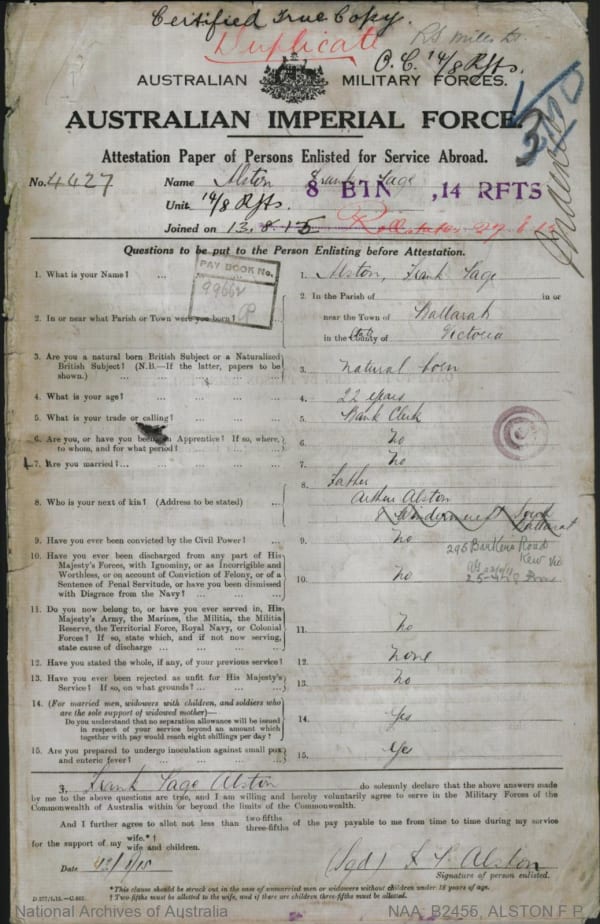 Certified True Copy.
Duplicate
O.C. 14/8 Rfts.
AUSTRALIAN MILITARY FORCES.
AUSTRALIAN IMPERIAL FORCE.
Attestation Paper of Persons Enlisted for Service Abroad.
No. 4427 Name Alston Frank Page
8 BTN, 14 RFTS
Unit 14/8 Rfts.
Joined on 13.8.15
Questions to be put to the Person Enlisting before Attestation.
PAY BOOK No.
99662
1. What is your Name? ... ... 1. Alston, Frank Page
2. In or near what Parish or Town were you born? 2. In the Parish of in or
near the Town of Ballarat
in the County of State Victoria
3. Are you a natural born British Subject or a Naturalized
British Subject? (N.B.—If the latter, papers to be
shown.) ... 3. Natural born
4. What is your age? ... 4. 22 years
5. What is your trade or calling? ... 5. Bank Clerk
6. Are you, or have you been an Apprentice? If so, where,
to whom, and for what period? ... 6. No
7. Are you married? ... 7. No
8. Who is your next of kin? (Address to be stated) ... 8. Father
Arthur Alston
8 Windermere St South
Ballarat
296 Barkers Road
Kew Vic
9. Have you ever been convicted by the Civil Power? ... 9. No
10. Have you ever been discharged from any part of His
Majesty's Forces, with Ignominy, or as Incorrigible and
Worthless, or on account of Conviction of Felony, or of a
Sentence of Penal Servitude, or have you been dismissed
with Disgrace from the Navy? ... 10. No
11. Do you now belong to, or have you ever served in, His
Majesty's Army, the Marines, the Militia, the Militia
Reserve, the Territorial Force, Royal Navy, or Colonial
Forces? If so, state which, and if not now serving,
state cause of discharge ... 11. No
12. Have you stated the whole, if any, of your previous service? 12. None
13. Have you ever been rejected as unfit for His Majesty's
Service? If so, on what grounds? ... 13. No
14. (For married men, widowers with children, and soldiers who
are the sole support of widowed mother)—
Do you understand that no separation allowance will be issued
in respect of your service beyond an amount which
together with pay would reach eight shillings per day? 14. Yes
15. Are you prepared to undergo inoculation against small pox
and enteric fever? ... 15. Yes
I, Frank Page Alston do solemnly declare that the above answers made
by me to the above questions are true, and I am willing and hereby voluntarily agree to serve in the Military Forces of the
Commonwealth of Australia within or beyond the limits of the Commonwealth.
And I further agree to allot not less than two-fifths three-fifths of the pay payable to me from time to time during my service
for the support of my wife.*†
wife and children.
Date (Sgd) F P Alston
Signature of person enlisted.
*This clause should be struck out in the case of unmarried men or widowers without children under 18 years of age.
† Two fifths must be allotted to the wife, and if there are children three-fifths must be allotted.
National Archives of Australia NAA: B2456, ALSTON F P